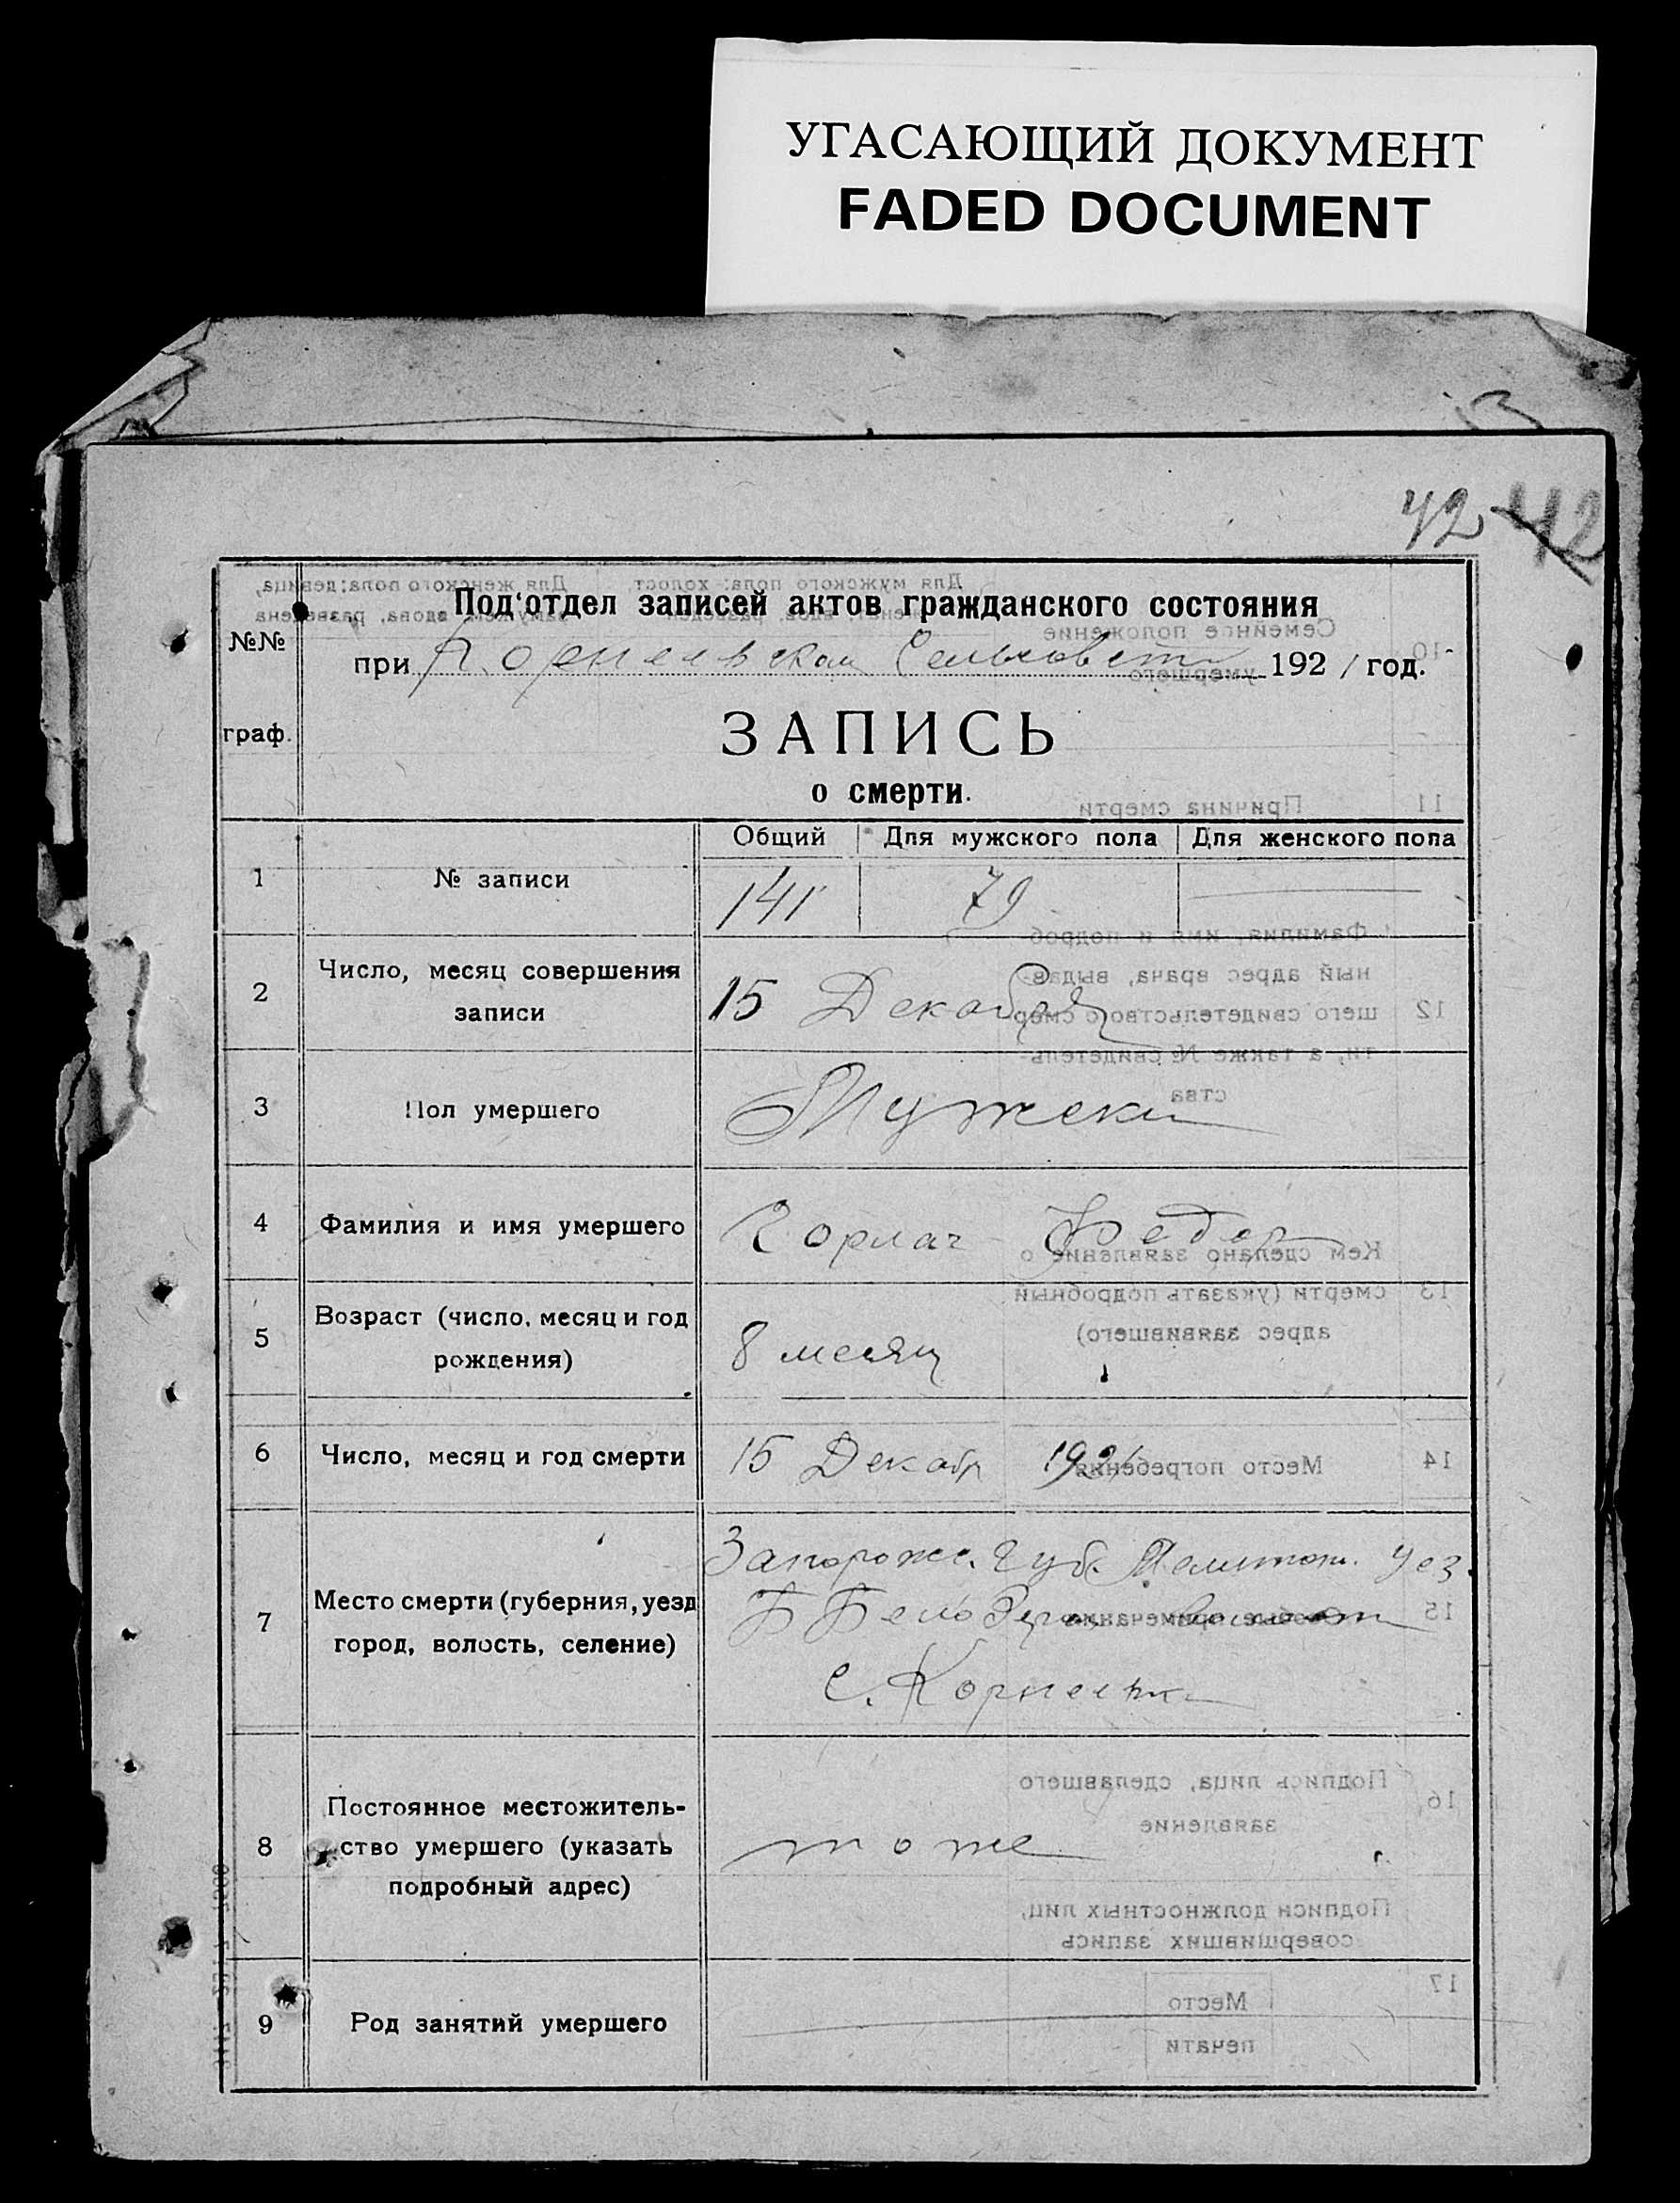 УГАСАЮЩИЙ ДОКУМЕНТ
FADED DOCUMENT
42 42
№№
граф.
Под'отдел записей актов гражданского состояния
при Корнеевском Сельсовет 1921 год.
ЗАПИСЬ
о смерти.
Общий Для мужского пола Для женского пола
1 № записи 141 79
2 Число, месяц совершения
записи
15 Декабря
3 Пол умершего Мужски
4 Фамилия и имя умершего Горлач Федор
5 Возраст (число, месяц и год
рождения)
8 месяц
6 Число, месяц и год смерти 15 Декабр 1921
7 Место смерти (губерния, уезд
город, волость, селение)
Запорожс. Губ. Мелитоп. уез.
Б Белозерск волост
С. Корнеевка
8 Постоянное местожитель-
ство умершего (указать
подробный адрес)
тоже
9 Род занятий умершего